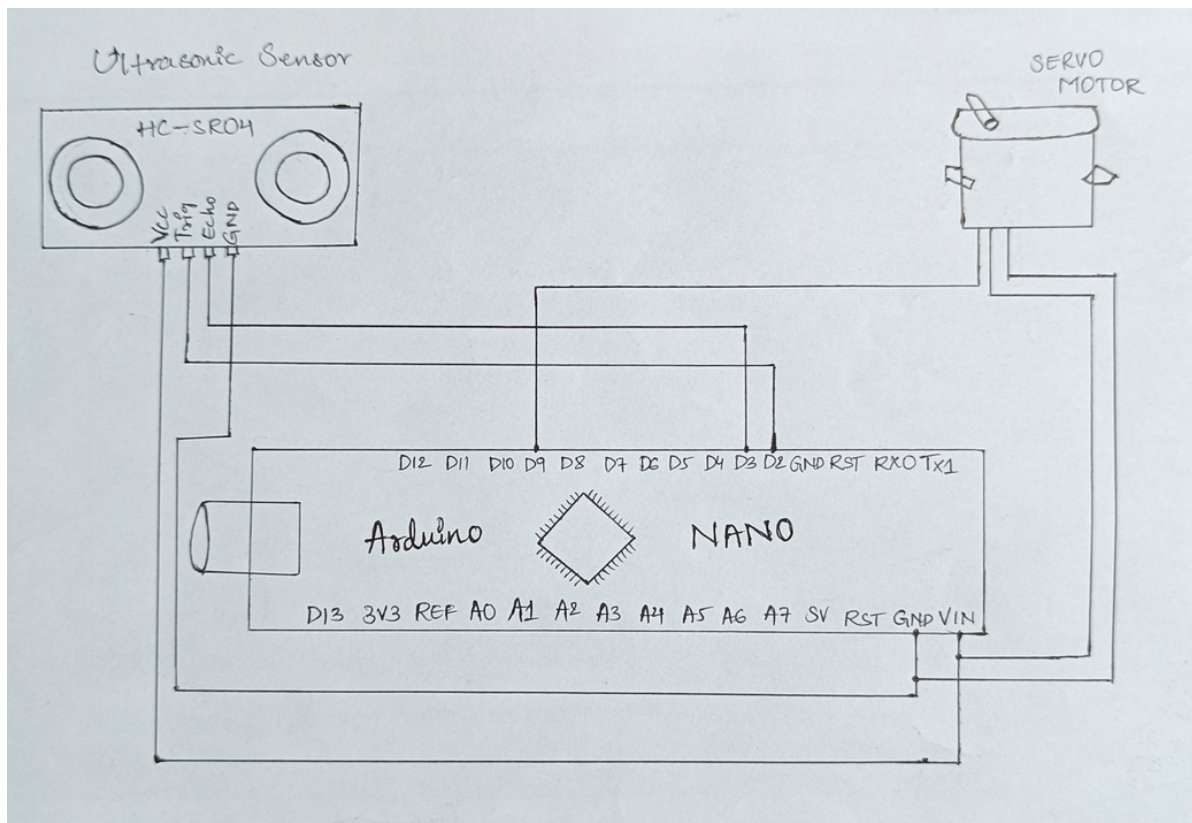 Ultrasonic Sensor
SERVO
MOTOR
HC-SR04
Vcc
Trig
Echo
GND
D12 D11 D10 D9 D8 D7 D6 D5 D4 D3 D2 GND RST RX0 TX1
Arduino NANO
D13 3V3 REF A0 A1 A2 A3 A4 A5 A6 A7 5V RST GND VIN